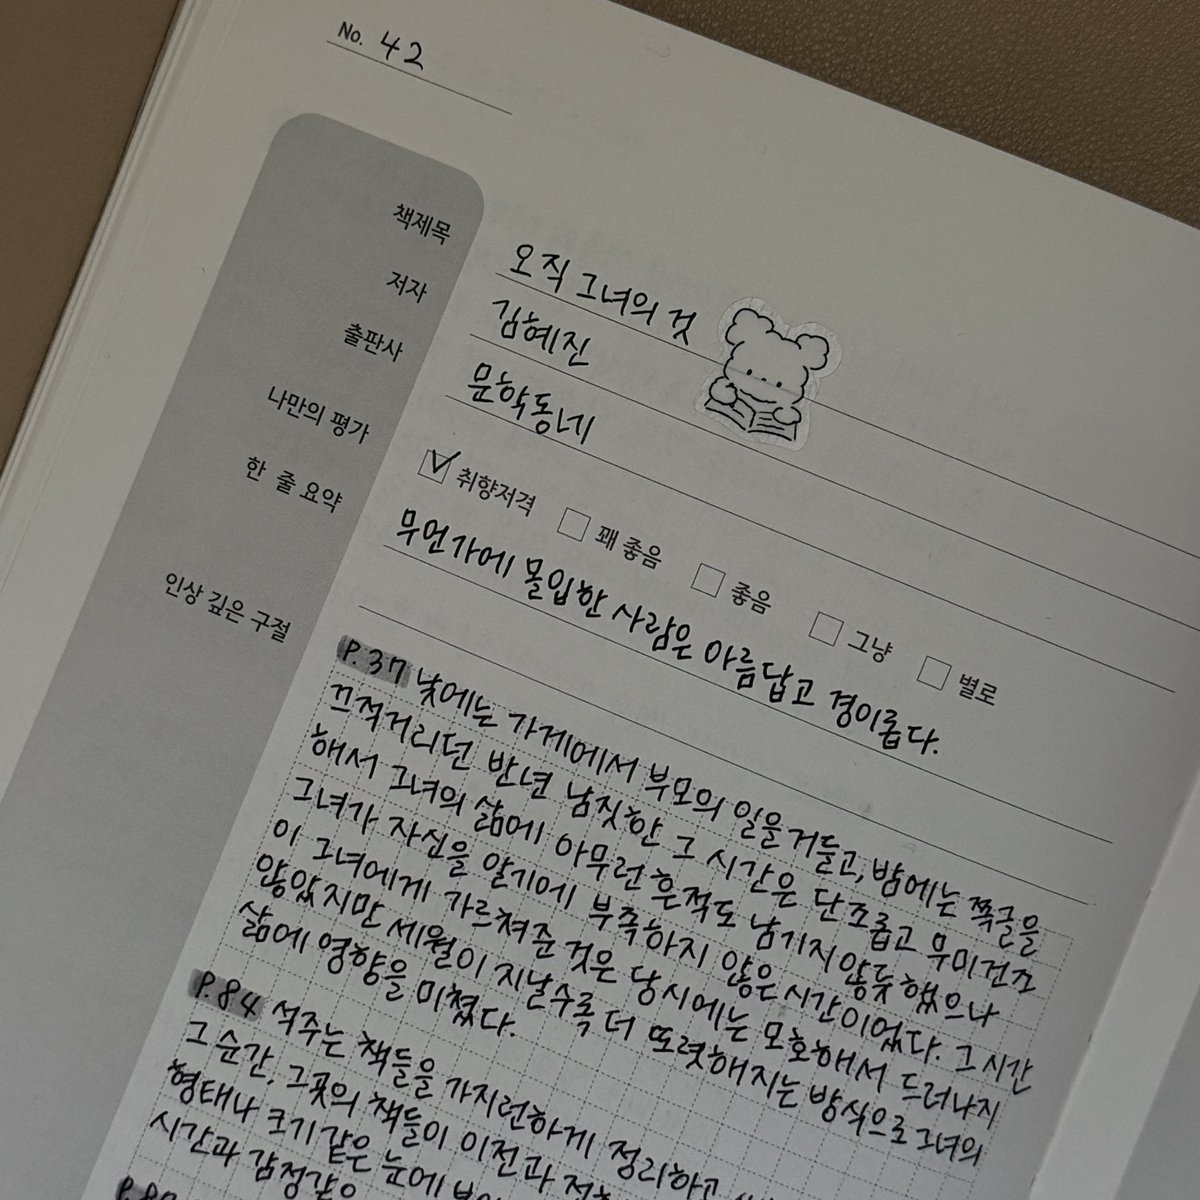 No. 42
책제목 오직 그녀의 것
저자 김혜진
출판사 문학동네
나만의 평가 취향저격 꽤 좋음 좋음 그냥 별로
한 줄 요약 무언가에 몰입한 사람은 아름답고 경이롭다.
인상 깊은 구절
P.37 낮에는 가게에서 부모의 일을 거들고, 밤에는 쪽글을
끄적거리던 반년 남짓한 그 시간은 단조롭고 무미건조
해서 그녀의 삶에 아무런 흔적도 남기지 않듯 했으나
그녀가 자신을 알기에 부족하지 않은 시간이었다. 그 시간
이 그녀에게 가르쳐준 것은 당시에는 모호해서 드러나지
않았지만 세월이 지날수록 더 또렷해지는 방식으로 그녀의
삶에 영향을 미쳤다.
P.84 석주는 책들을 가지런하게 정리하고
그 순간, 그곳의 책들이 이전과
형태나 크기 같은 눈에
시간과 감정같은